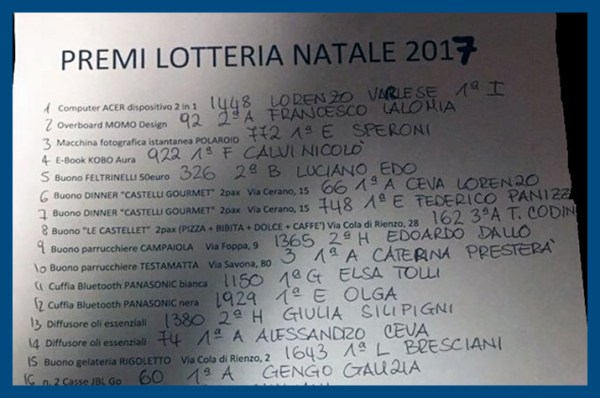 PREMI LOTTERIA NATALE 2017
1 Computer ACER dispositivo 2 in 1 1448 LORENZO VARLESE 1ª I
2 Overboard MOMO Design 92 2ª A FRANCESCO IALOMIA
3 Macchina fotografica istantanea POLAROID 772 1ª E SPERONI
4 E-Book KOBO Aura 922 1ª F CALVI NICOLÒ
5 Buono FELTRINELLI 50euro 326 2ª B LUCIANO EDO
6 Buono DINNER "CASTELLI GOURMET" 2pax Via Cerano, 15 66 1ª A CEVA LORENZO
7 Buono DINNER "CASTELLI GOURMET" 2pax Via Cerano, 15 748 1ª E FEDERICO PANIZZ
8 Buono "LE CASTELLET" 2pax (PIZZA + BIBITA + DOLCE + CAFFE') Via Cola di Rienzo, 28 162 3ª A T. CODIN
9 Buono parrucchiere CAMPAIOLA Via Foppa, 9 1365 2ª H EDOARDO DALLO
10 Buono parrucchiere TESTAMATTA Via Savona, 80 3 1ª A CATERINA PRESTERÀ
11 Cuffia Bluetooth PANASONIC bianca 1150 1ª G ELSA TOLLI
12 Cuffia Bluetooth PANASONIC nera 1929 1ª E OLGA
13 Diffusore oli essenziali 1380 2ª H GIULIA SILIPIGNI
14 Diffusore oli essenziali 74 1ª A ALESSANDRO CEVA
15 Buono gelateria RIGOLETTO Via Cola di Rienzo, 2 1643 1ª L BRESCIANI
16 n. 2 Casse JBL Go 60 1ª A GENGO GAUZIA